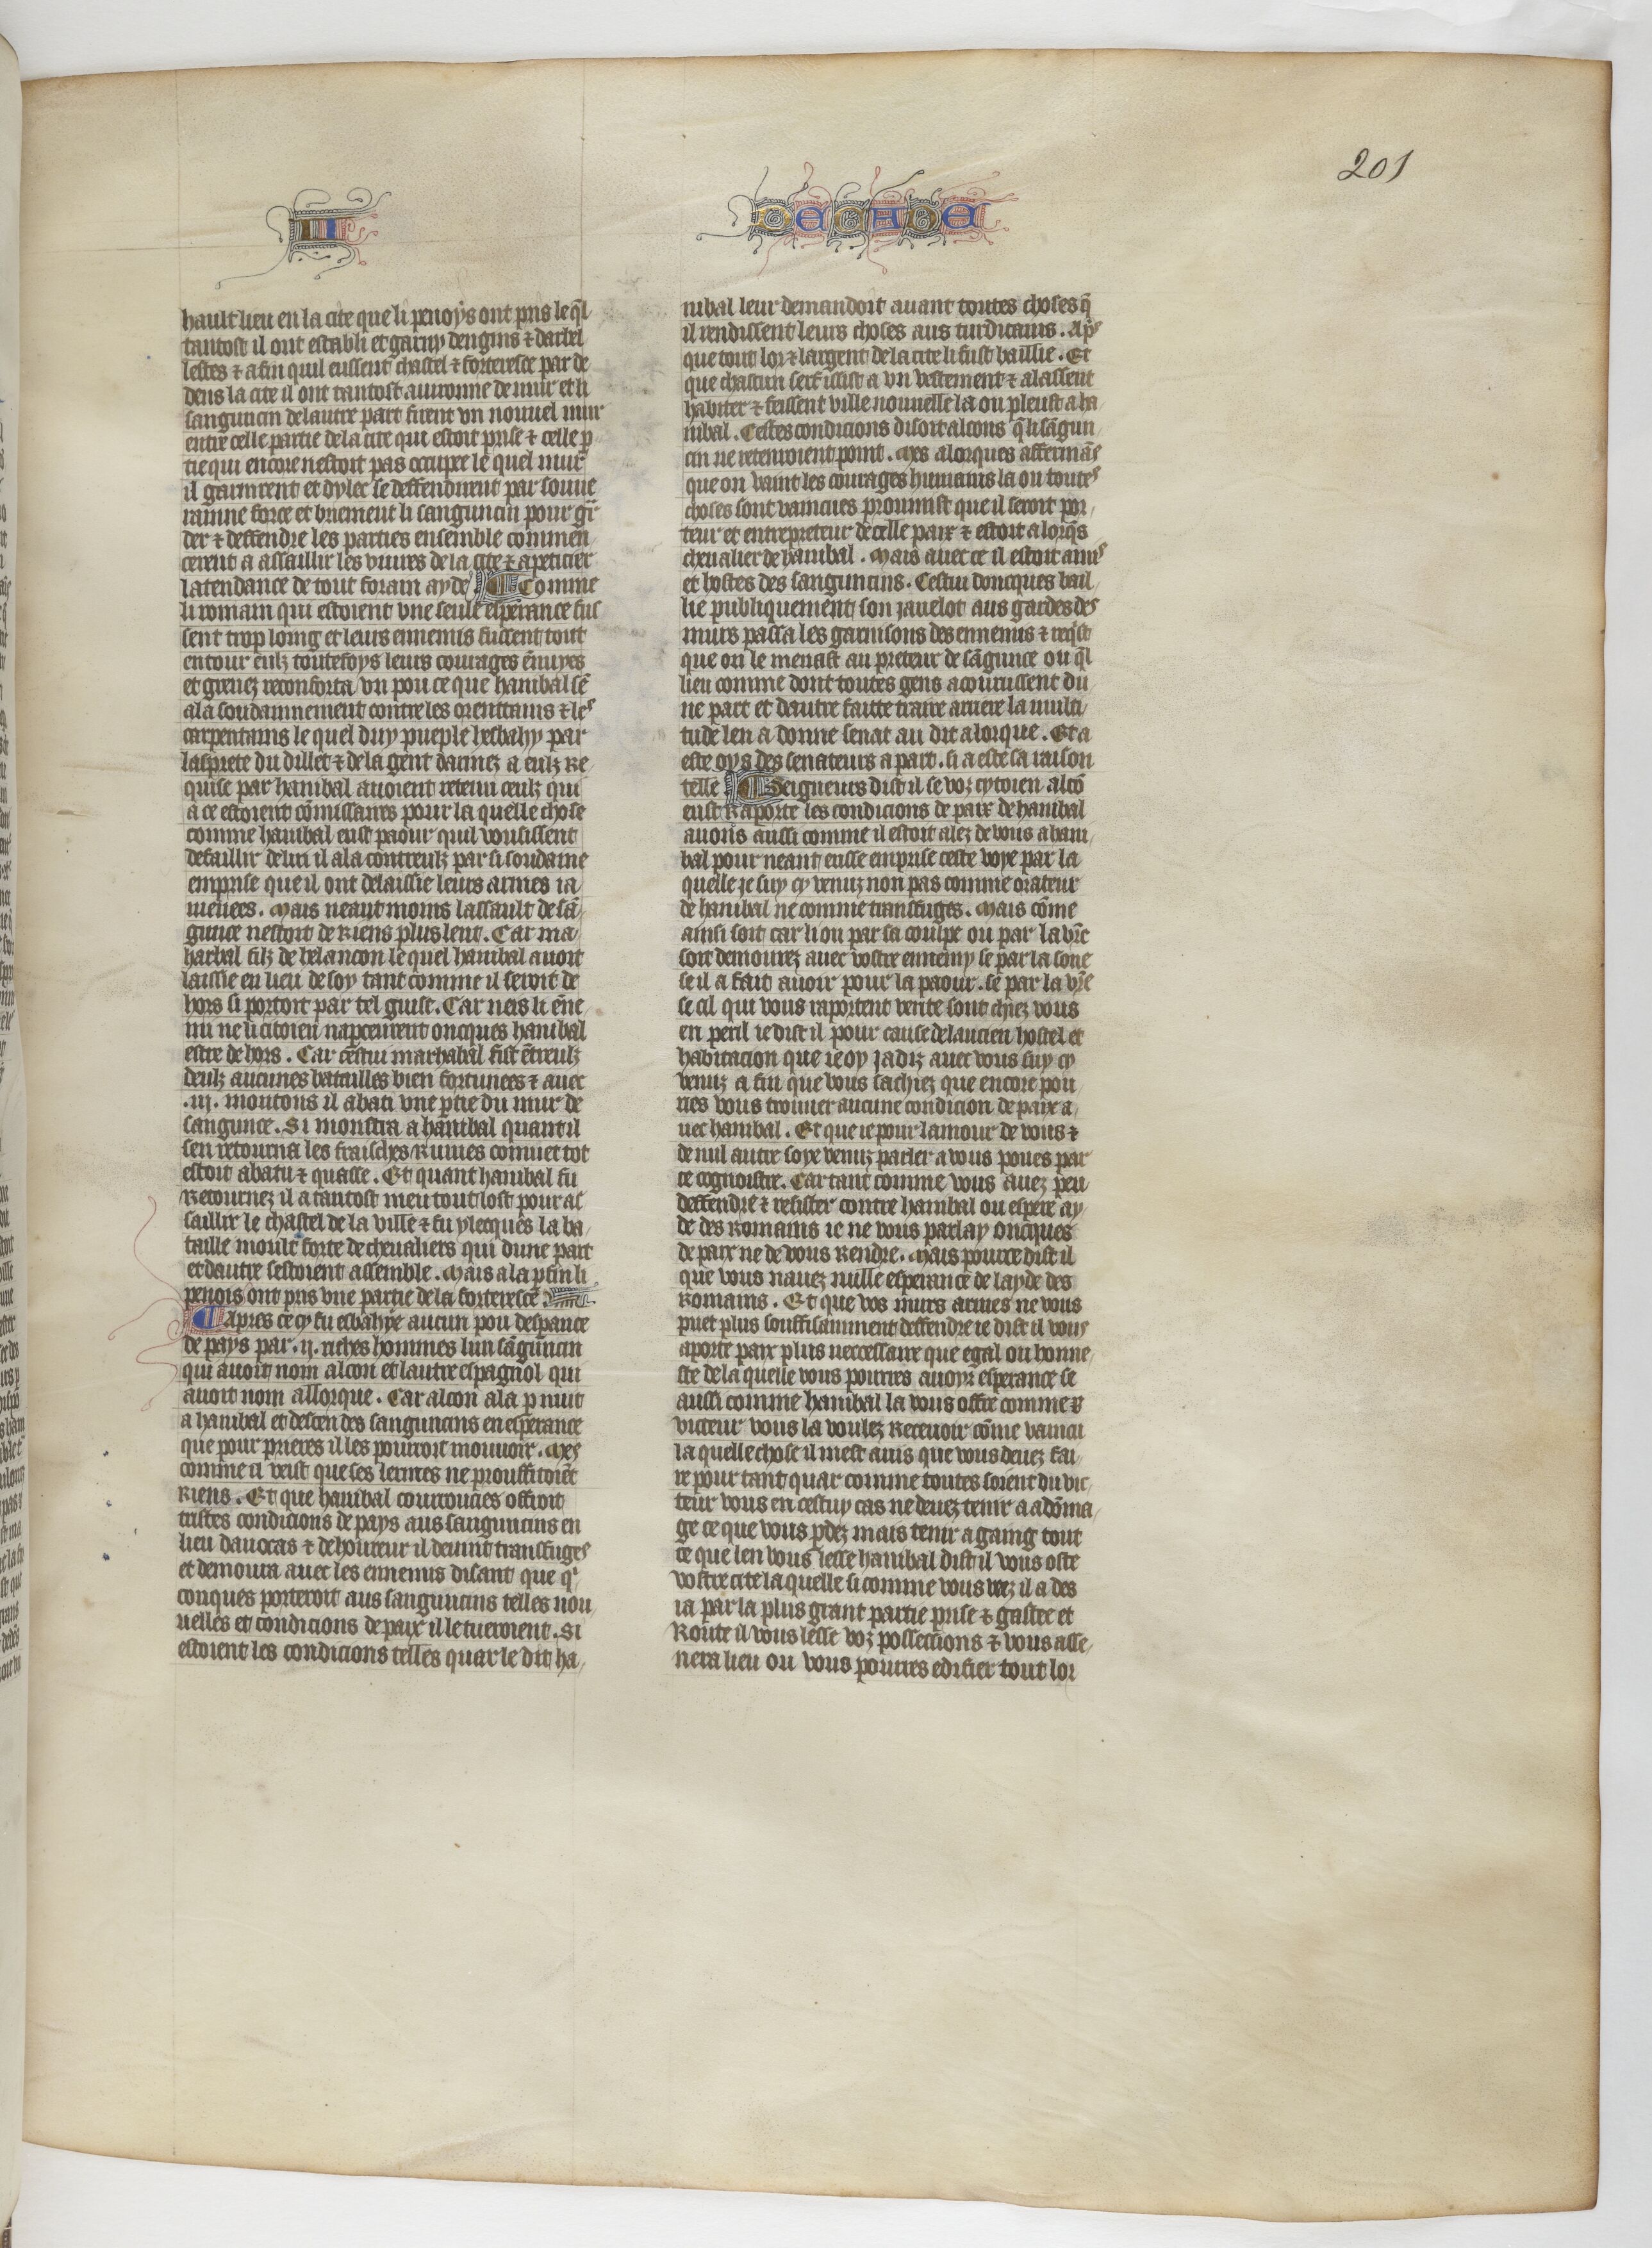 201
II
DECADE
hault lieu en la cite que li penoys ont pris le q̄l
tantost il ont establi et garny dengins ⁊ darbel
lestes ⁊ afin quil eussent chastel ⁊ forteresce par de
dens la cite il ont tantost auironne de mur et li
sanguncin delautre part firent vn nouuel mur
entre celle partie de la cite qui estoit prise ⁊ celle p̄
tie qui encore nestoit pas occupee le quel mur
il garnirent et dylec se deffendirent par souue
rainne force et briement li sanguncin pour gr̄
der ⁊ deffendre les parties ensemble commen
cerent a assaillir les viures de la cite ⁊ apeticier
latendance de tout forain ayde Comme
li romain qui estoient vne seule esperance fus
sent trop loing et leurs ennemis fussent tout
entour eulz toutefoys leurs courages ēnuyes
et greuez reconforta vn pou ce que hanibal sē
ala soudainnement contre les orenttains ⁊ les
carpentains le quel duy pueple hesbahy par
lasprete du dillet ⁊ de la gent darmez a eulz Re
quise par hanibal auoient retenu ceulz qui
a ce estoient cōmissaires pour la quelle chose
comme hanibal eust paour quil vousissent
defaillir de lui il ala contreulz par si soudaine
emprise que il ont delaissie leurs armes ia
meuees. Mais neant moins lassault de sā
gunce nestoit de Riens plus lent. Car ma
harbal filz de belancon le quel hanibal auoit
laissie en lieu de soy tant comme il seroit de
hors si portoit par tel guise. Car neis li ēne
mi ne li citoien napceurent oncques hanibal
estre de hors. Car cestui marhabal fist ētreulz
deulz aucunes batailles bien fortunees ⁊ auec
.iij. moutons il abati vne p̄tie du mur de
sangunce. Si monstra a hanibal quant il
sen retourna les fraisches Ruines comment tot
estoit abatu ⁊ quasse. Et quant hanibal fu
Retournez il a tantost meu tout lost pour as
saillir le chastel de la ville ⁊ fu ylecques la ba
taille moult forte de cheualiers qui dune part
et dautre sestoient assemble. Mais a la p̄fin li
penois ont pris vne partie de la forteresce
Apres ce cy fu esbahye aucun pou despance
de pays par .ij. riches hommes lun sāguncin
qui auoit nom alcon et lautre espagnol qui
auoit nom allorque. Car alcon ala p nuit
a hanibal et descendes sanguncins en esperance
que pour prieres il les pourroit mouuoir. Mes
comme il veist que ses lermes ne prouffitoiēt
Riens. Et que hanibal courroucies offroit
tristes condicions de pays aus sanguncins en
lieu dauocas ⁊ de houreur il deuint transfuges
et demoura auec les ennemis disant que q̄
conques porteroit aus sanguncins telles nou
uelles et condicions de paix il le tueroient. Si
estoient les condicions telles quar le dit ha
nibal leur demandoit auant toutes choses q̄
il rendissent leurs choses aus turdicains. Ap̄s
que tout lor ⁊ largent de la cite li fust baillie. Et
que chascun serf issist a vn vestement ⁊ alassent
habiter ⁊ feissent ville nouuelle la ou pleust a ha
nibal. Cestes condicions disoit alcons q̄ li sāgun
cin ne retenroient point. Mes alorques affermās
que on vaint les courages humains la ou toutes
choses sont vaincues proumist que il seroit por
teur et entrepreteur de celle paix ⁊ estoit alorq̄s
cheualier de hanibal. Mais auec ce il estoit amis
et hostes des sanguncins. Cestui doncques bail
lie publiquement son jauelot aus gardes des
murs passa les garnisons des ennemis ⁊ req̄st
que on le menast au preteur de sāgunce ou q̄l
lieu comme dont toutes gens acourussent du
ne part et dautre faitte traire arriere la multi
tude len a donne senat au dit alorque. Et a
este oys des senateurs a part. si a este sa raison
telle Seigneurs dist il se voz cytoien alcō
eust Raporte les condicions de paix de hanibal
auons aussi comme il estoit alez de vous a hani
bal pour neant eusse emprise ceste voye par la
quelle je suy cy venuz non pas comme orateur
de hanibal ne comme transfuges. Mais cōme
ainsi soit car li ou par sa coulpe ou par la vr̄e
soit demourez auec vostre ennemy se par la soue
se il a fait auoir pour la paour. se par la vr̄e
se cil qui vous raportent verite sont chiez vous
en peril ie dist il pour cause de lancien hostel et
habitacion que ie oy jadiz auec vous suy cy
venuz a fin que vous sachiez que encore pou
ries vous trouuer aucune condicion de paix a
uec hanibal. Et que ie pour lamour de vous ⁊
de nul autre soye venuz parler a vous poues par
ce cognoistre. Car tant comme vous auez peu
deffendre ⁊ resister contre hanibal ou espere ay
de des Romains ie ne vous parlay oncques
de paix ne de vous Rendre. Mais pource dist il
que vous nauez nulle esperance de layde des
Romains. Et que vos murs armes ne vous
puet plus souffisamment deffendre ie dist il vous
aporte paix plus neccessaire que egal ou honne
ste de la quelle vous pourres auoyr esperance se
aussi comme hanibal la vous offre comme
victeur vous la voulez Receuoir cōme vaincu
la quelle chose il mest auis que vous deuez fai
re pour tant quar comme toutes soient du vic
teur vous en cestuy cas ne deuez tenir a adōma
ge ce que vous p̄dez mais tenir a gaing tout
ce que len vous lesse hanibal dist il vous oste
vostre cite la quelle si comme vous veez il a des
ia par la plus grant partie prise ⁊ gastee et
Route il vous lesse voz possessions ⁊ vous asse
nera lieu ou vous pourres edifier tout lor